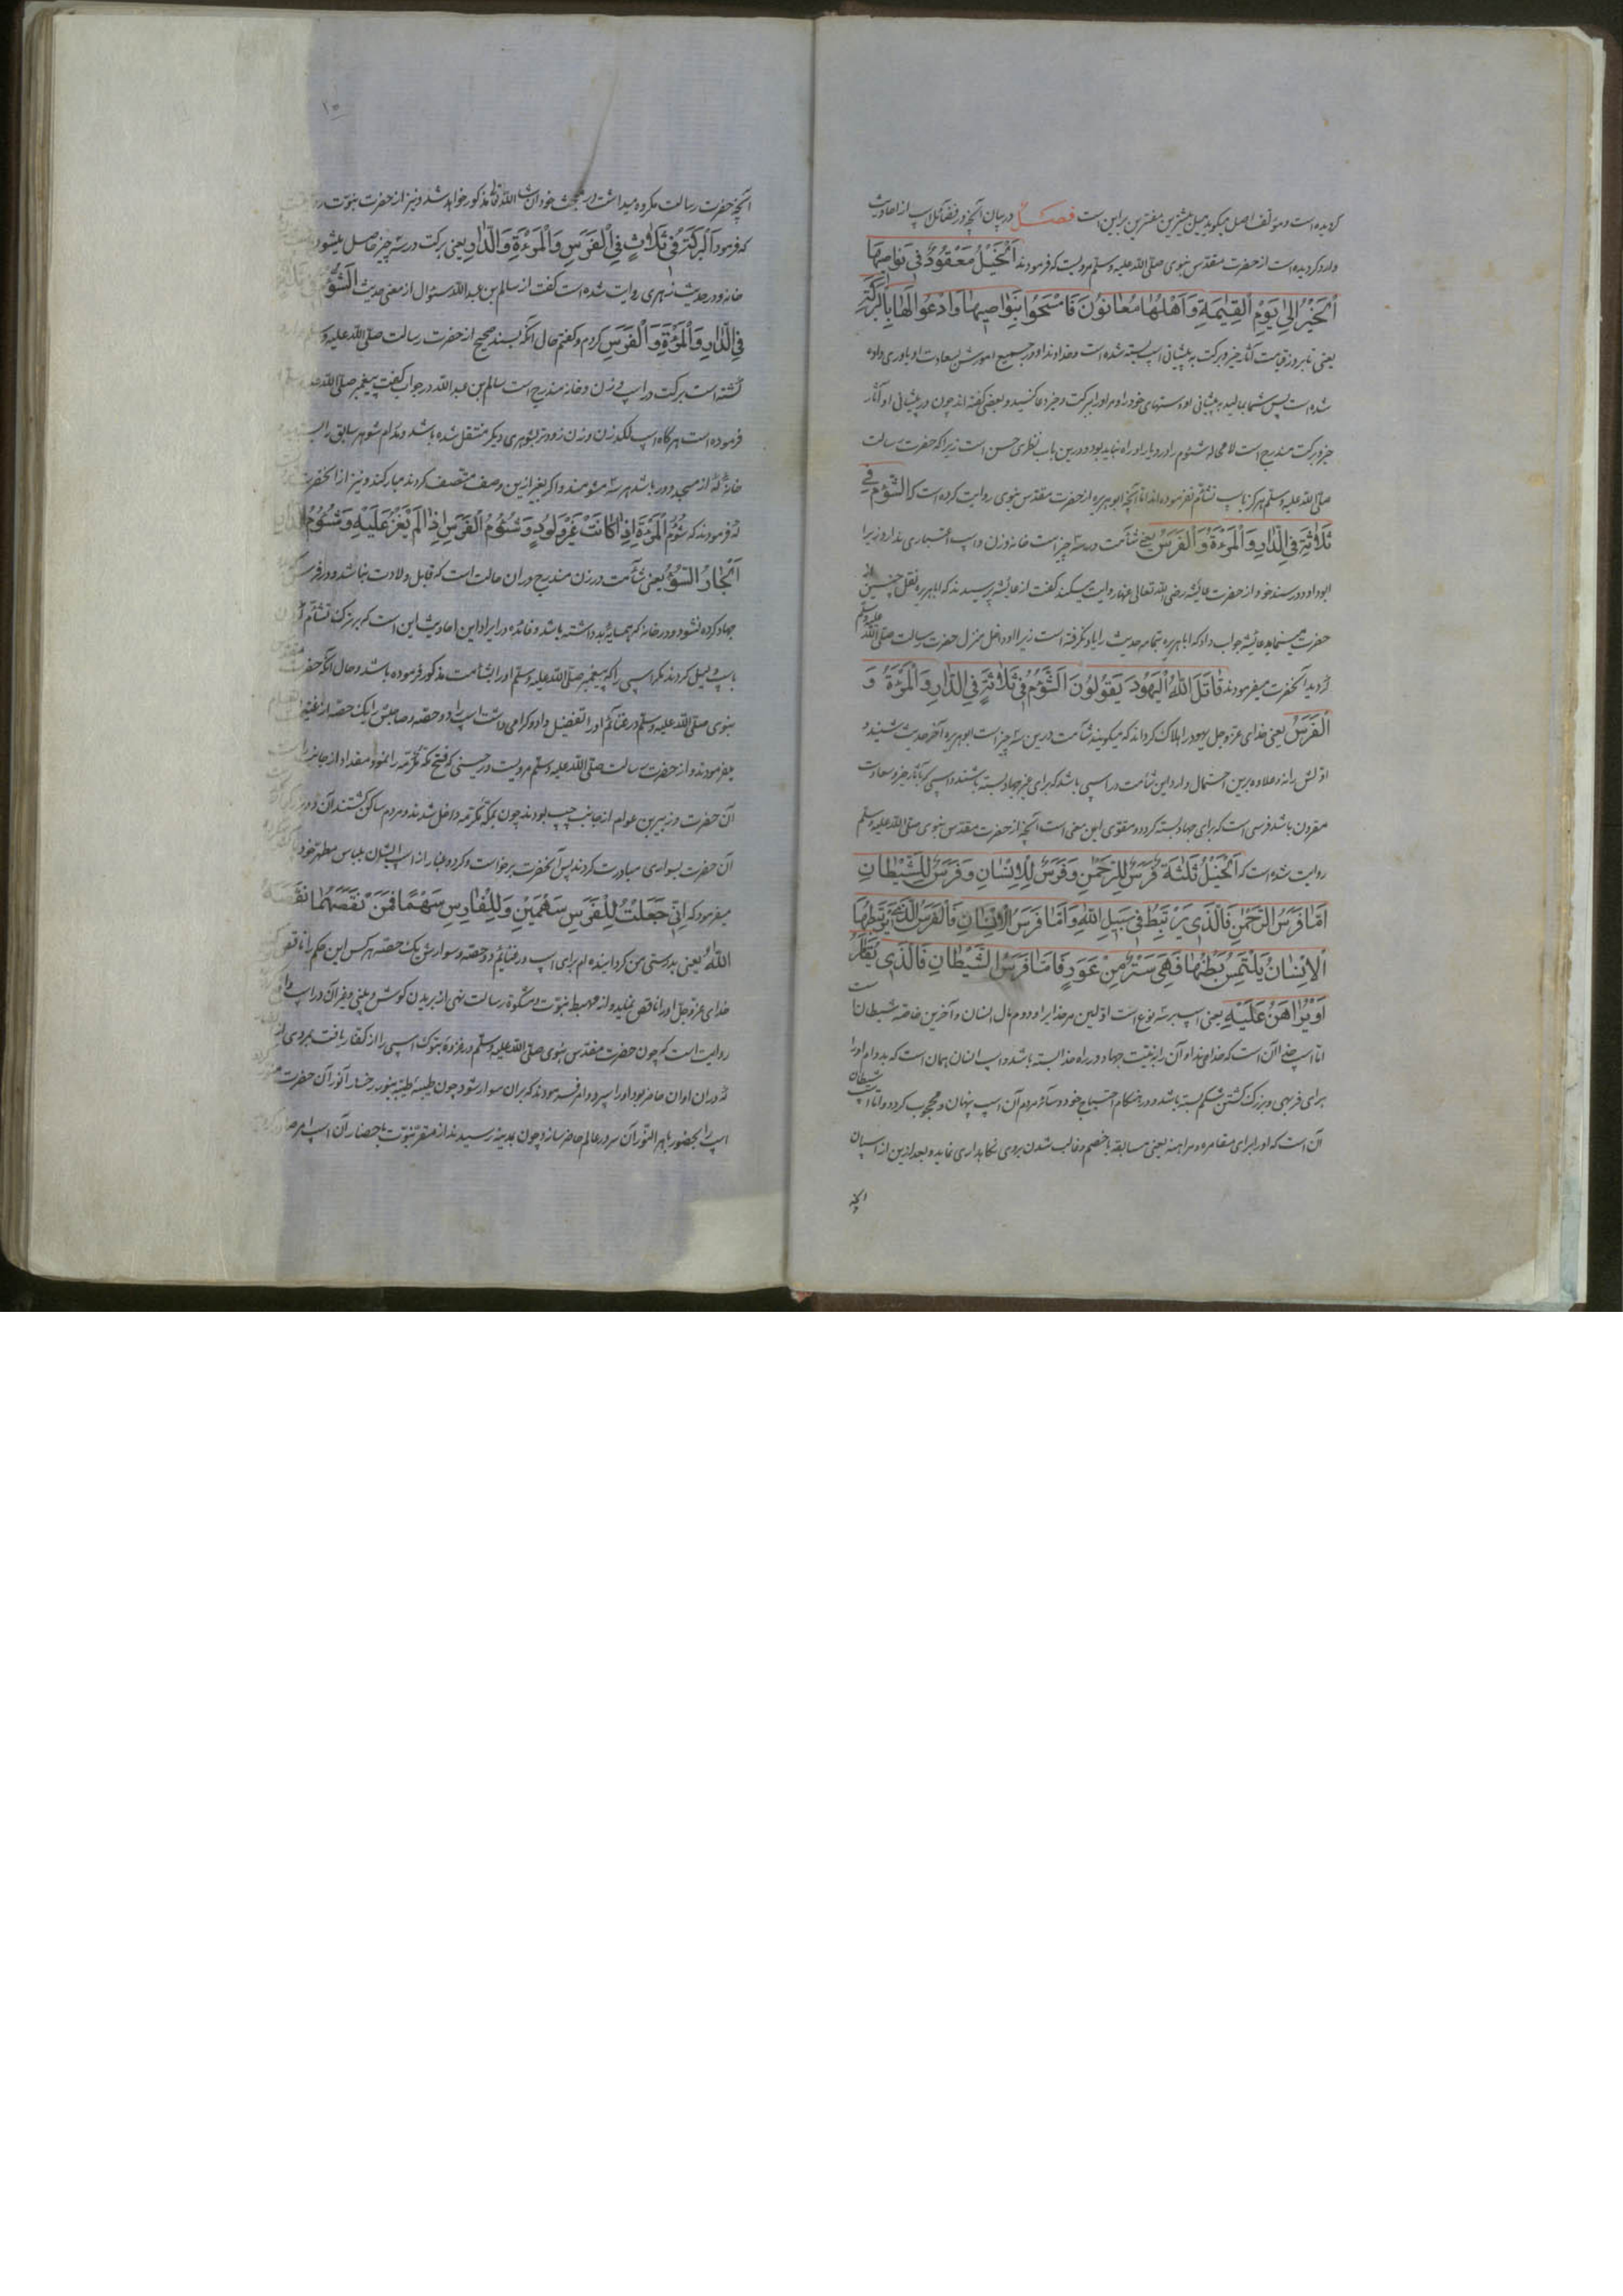 کردیده است و مؤلف اصل میکوید میل بیشترین مفسرین براین است فصل در بیان آنچه در فضائل اسپ از احادیث
وارد کردیده است از حضرت مقدس نبوی صلی الله علیه وسلم مرویست که فرمودند اَلْخَیْلُ مَعْقُودٌ فی نَواصِیهَا
اَلْخَیْرُ اِلیٰ یَوْمِ الْقِیٰمَةِ وَ اَهْلُهٰا مُعٰانُونَ فَامْسَحُوا بِنَوٰاصِیهٰا وَادْعُوا لَهٰا بِالْبَرَکَةِ
یعنی تا بروز قیامت آثار خیر و برکت به پیشانی اسپ بسته شده است و خداوند او در جمیع امورش بسعادت و یاوری داده
شده است پس شما بمالید به پیشانی او دستهای خود را و مر او را ببرکت و خیر دعا کنید و بعضی کفته اند چون در پیشانی او آثار
خیر و برکت مندرج است لا محاله شئوم را در و باو راه نباید بود و درین باب نظری حسن است زیرا که حضرت رسالت
صلی الله علیه وسلم هرکز باسپ تشأم نفرموده اند اما آنچه ابو هریره از حضرت مقدس نبوی روایت کرده است که الشُّؤْمُ فی
ثَلاٰثَةٍ فِی الدّٰارِ وَ الْمَرْءَةِ وَ الْفَرَسِ یعنی شأمت در سه چیز است خانه و زن و اسپ اعتباری ندارد زیرا
ابو داود در سند خود از حضرت عایشه رضی الله تعالی عنها روایت میکند کفت از عایشه پرسیدند که ابا هریره نقل چنین از
حضرت مینماید عایشه جواب داد که ابا هریره تمام حدیث را یاد نکرفته است زیرا او داخل منزل حضرت رسالت صلی الله علیه وسلم
کردید آنحضرت میفرمودند قٰاتَلَ اللّٰهُ الْیَهُودَ یَقُولُونَ اَلشُّؤْمُ فی ثَلاٰثَةٍ فِی الدّٰارِ وَ الْمَرْءَةِ وَ
الْفَرَسِ یعنی خدای عز و جل یهود را هلاک کرداند که میکویند شأمت درین سه چیز است ابو هریره آخر حدیث شنید و
اولش را نه و علاوه برین احتمال دارد این شأمت در اسپی باشد که برای غیر جهاد بسته باشند و اسپی که بآثار خیر و سعادت
مقرون باشد فرسی است که برای جهاد بسته کردد و مقوی این معنی است آنچه از حضرت مقدس نبوی صلی الله علیه وسلم
روایت شده است که اَلْخَیْلُ ثَلٰثَةٌ فَرَسٌ لِلرَّحْمٰنِ وَ فَرَسٌ لِلْاِنْسٰانِ وَ فَرَسٌ لِلشَّیْطٰانِ
اَمّٰا فَرَسُ الرَّحْمٰنِ فَالَّذی یَرْتَبِطُ فی سَبیلِ اللّٰهِ وَ اَمّٰا فَرَسُ الْاِنْسٰانِ فَالْفَرَسُ الَّذی یَرْتَبِطُهٰا
اَلْاِنْسٰانُ یَلْتَمِسُ بَطْنَهٰا فَهِیَ سَتْرٌ مِنْ عَوَدٍ فَاَمّٰا فَرَسُ الشَّیْطٰانِ فَالَّذی یُقٰامَرُ
اَوْ یُرٰاهَنُ عَلَیْهِ یعنی اسپ بر سه نوع است اولین مر خدایرا و دوم مال انسان و آخرین خاصه شیطان است
اما اسپ خدا آن است که خداوند او آن را به نیت جهاد در راه خدا بسته باشد و اسپ انسان همان است که بدوام او را
برای فربهی و بزرک کشتن شکم بسته باشد و در هنکام احتیاج خود و سائر مردم آن اسپ پنهان و محجوب کردد و اما اسپ شیطان
آن است که او را برای مقامره و مراهنه یعنی مسابقه با خصم و غالب شدن بر وی نکاهداری نماید و بعد ازین از اسپان
آنچه
۱۰
آنچه حضرت رسالت مکروه میداشت در مبحث خود ان شاء الله تعالی مذکور خواهد شد و نیز از حضرت نبوت
که فرمود اَلْبَرَکَةُ فی ثَلاٰثٍ فِی الْفَرَسِ وَ الْمَرْءَةِ وَ الدّٰارِ یعنی برکت در سه چیز حاصل میشود
خانه و در حدیث زهری روایت شده است کفت از سالم بن عبد الله سؤال از معنی حدیث الشُّؤْمُ فی ثَلاٰثَةٍ
فِی الدّٰارِ وَ الْمَرْءَةِ وَ الْفَرَسِ کردم و کفتم حال آنکه بسند صحیح از حضرت رسالت صلی الله علیه و
کشته است برکت در اسپ و زن و خانه مندرج است سالم بن عبد الله در جواب کفت پیغمبر صلی الله علیه
فرموده است هرکاه اسپ لکد زن و زن زودتر بشوهری دیکر منتقل شده باشد و مدام شوهر سابق را
خانه که از مسجد دور باشد هر سه مشومند و اکر بغیر ازین وصف متصف کردند مبارکند و نیز از آنحضرت
که فرمودند که شُؤْمُ الْمَرْءَةِ اِذٰا کٰانَتْ غَیْرَ وَلُودٍ وَ شُؤْمُ الْفَرَسِ اِذٰا لَمْ یُغْزَ عَلَیْهِ وَ شُؤْمُ الدّٰارِ
اَلْجٰارُ السُّوءُ یعنی شأمت در زن مندرج در ان حالت است که قابل ولادت نباشد و در فرس
جهاد کرده نشود و در خانه که همسایهٔ بد داشته باشد و فائده در ایراد این احادیث این است که هرکز تشأم
باسپ و میل کردند مکر اسپی را که پیغمبر صلی الله علیه وسلم او را بشأمت مذکور فرموده باشد و حال آنکه حضرت مقدس
نبوی صلی الله علیه وسلم در غنائم او را تفضیل داد و کرامی داشت اسپ را دو حصه و صاحبش را یک حصه از غنیمت
میفرمودند و از حضرت رسالت صلی الله علیه وسلم مرویست در حینی که فتح مکه مکرمه را نمود و مقداد از جانب راست
آن حضرت و زبیر بن عوام از جانب چپ بودند چون بمکه مکرمه داخل شدند و مردم ساکن کشتند آن
آن حضرت بسواری مبادرت کردند پس آنحضرت برخواست و کرد و غبار از اسپ ایشان بلباس مطهر خود
میفرمود که اِنّی جَعَلْتُ لِلْفَرَسِ سَهْمَیْنِ وَ لِلْفٰارِسِ سَهْمًا فَمَنْ نَقَصَهُمٰا نَقَصَهُ
اللّٰهُ یعنی بدرستی من کردانیده ام برای اسپ در غنایم دو حصه و سوارش یک حصه هر کس این حکم را ناقص
خدای عز و جل او را ناقص نماید و از مهبط نبوت و مشکوة رسالت نهی از بریدن کوش و بینی و غیر آن در اسپ
روایت است که چون حضرت مقدس نبوی صلی الله علیه وسلم در غزوهٔ تبوک اسپی را از کفار یافت بمردی از
که در ان اوان حاضر بود او را سپرد و امر فرمودند که بران سوار شود چون طیبهٔ طیبه بنور رخسار انور آن حضرت منور کردد
اسپ را بحضور باهر النور آن سرور عالم حاضر سازد چون بمدینه رسیدند از مقر نبوت باحضار آن اسپ امر صادر کردید